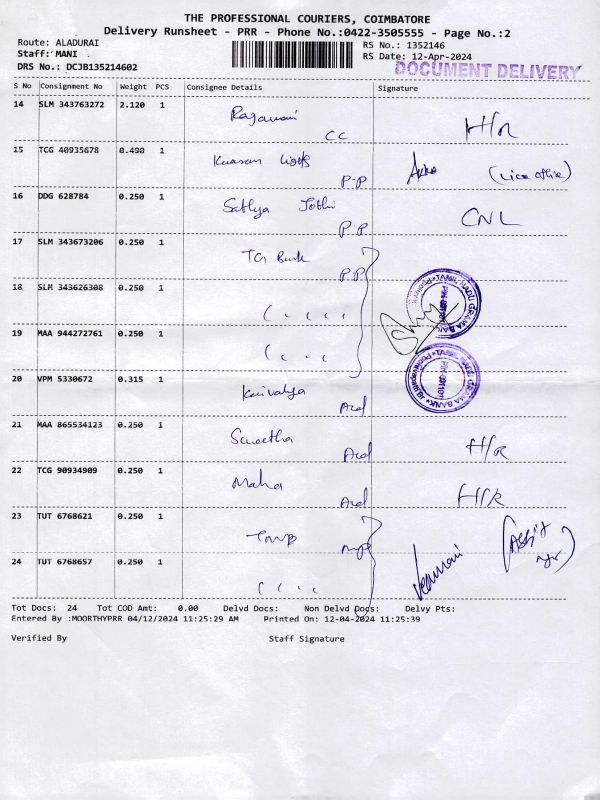 THE PROFESSIONAL COURIERS, COIMBATORE
Delivery Runsheet - PRR - Phone No.:0422-3505555 - Page No.:2
Route: ALADURAI
RS No.: 1352146
Staff: MANI
RS Date: 12-Apr-2024
DRS No.: DCJB135214602
DOCUMENT DELIVERY
S No Consignment No Weight PCS Consignee Details Signature
14 SLM 343763272 2.120 1
CC H/R
15 TCG 40935678 0.490 1
P-P
16 DDG 628784 0.250 1 Sathya Jothi
P.P CNL
17 SLM 343673206 0.250 1 TG Bank
P.P
18 SLM 343626308 0.250 1
19 MAA 944272761 0.250 1
TAMIL NADU GRAMA BANK
20 VPM 5330672 0.315 1 Kaivalya
21 MAA 865534123 0.250 1 Swetha
H/R
22 TCG 90934909 0.250 1 Maha
H/R
23 TUT 6768621 0.250 1 TMB
24 TUT 6768657 0.250 1
Tot Docs: 24 Tot COD Amt: 0.00 Delvd Docs: Non Delvd Docs: Delvy Pts:
Entered By :MOORTHYPRR 04/12/2024 11:25:29 AM Printed On: 12-04-2024 11:25:39
Verified By Staff Signature